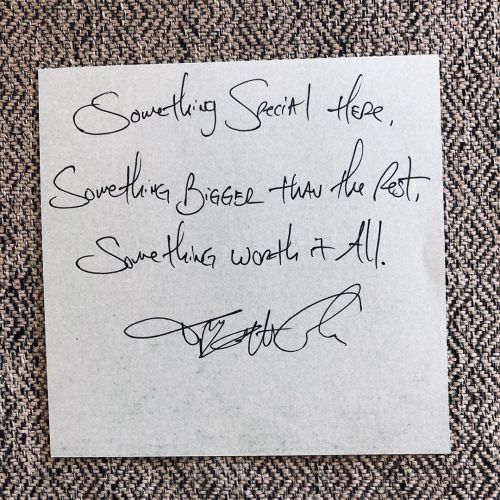 Something Special Here,
Something Bigger than the Rest,
Something worth it All.